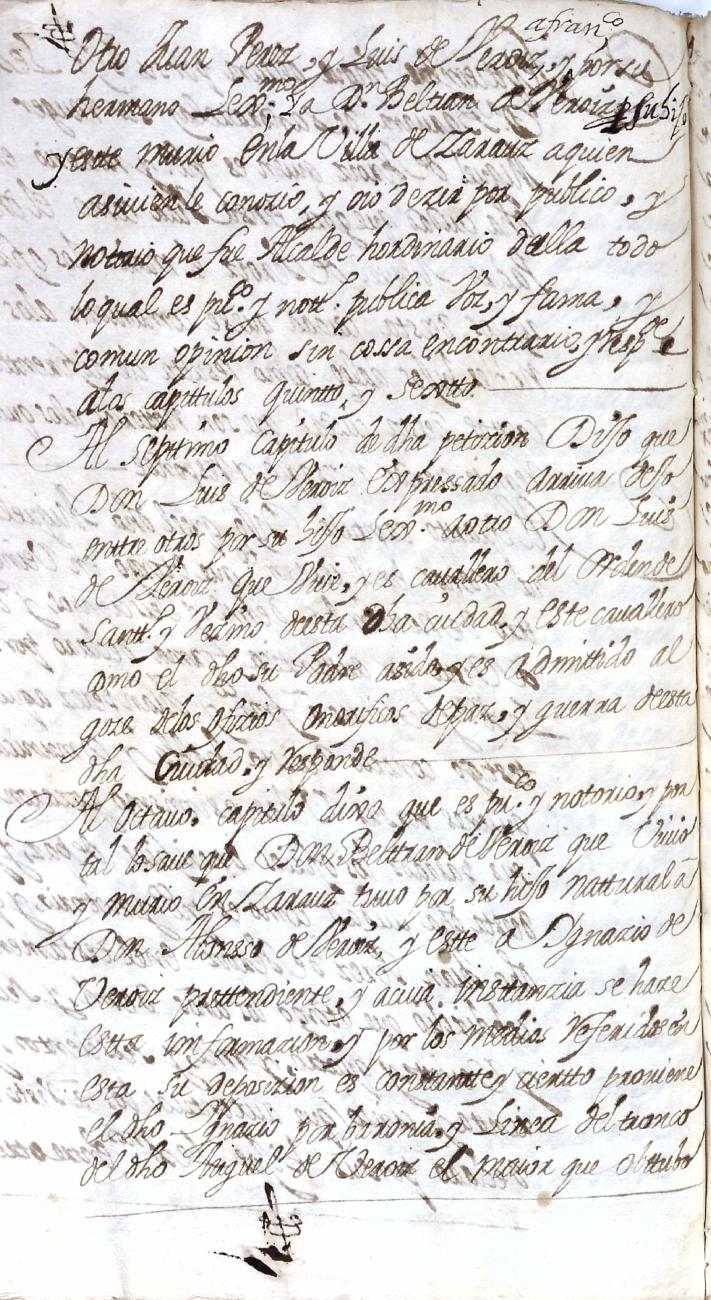 afran.co
Otro Juan Perez, y Luis de Veroiz, y por su
hermano Lexmo. Ya Dn Beltran de Veroiz su hijo
y estte murio en la Villa de Zarauz aquien
asimien le conozio, y oio dezir por publico, y
notorio que fue Alcalde hordinario della todo
lo qual es pu.co y nott.o publica Voz, y fama, y
comun opinion sin cossa en conttrario, y resp.de
a los capittulos quintto, y sexstto.
Al septimo capitulo de dha peticion Dijo que
Don Luis de Veroiz Expressado arriva dejo
enttre otros por su hijo Lexmo aotro Don Luis
de Veroiz que Vive, y es cavallero del Orden de
Santt.o y Vezino desta dha ciudad, y este cavallero
como el dho su Padre asido, y es admittido al
goze delos ofizios onorificos de paz, y guerra de esta
dha Ciudad, y responde
Al octtauo, capitulo dixo que es pu.co y notorio, y por
tal lo saue que Don Beltran de Veroiz que Viuio
y murio En Zarauz tuuo por su hijo nattural â
Don Alonsso de Veroiz, y estte a Ygnazio de
Veroiz prettendiente, y acuia insttanzia se haze
estta informazion, y por los medios referidos en
esta su deposizion es constantte y ciertto proviene
el dho Ygnazio por baronia, y Linea del tronco
del dho Miguel de Veroiz el maior que obttubo